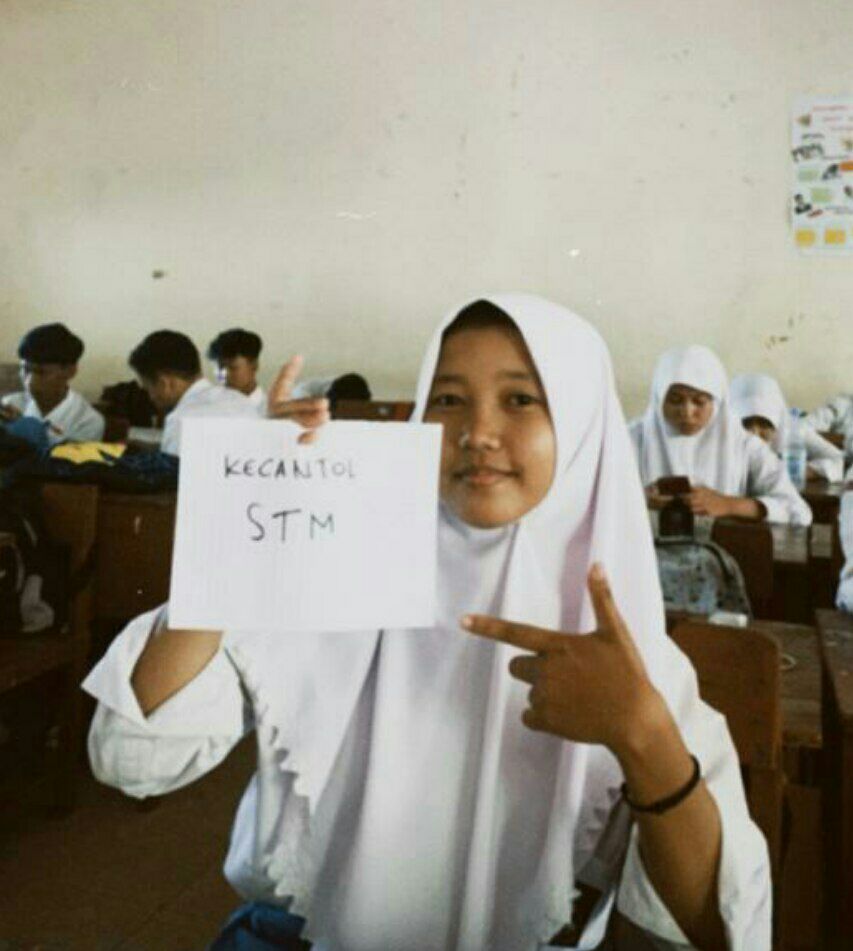 KECANTOL
STM